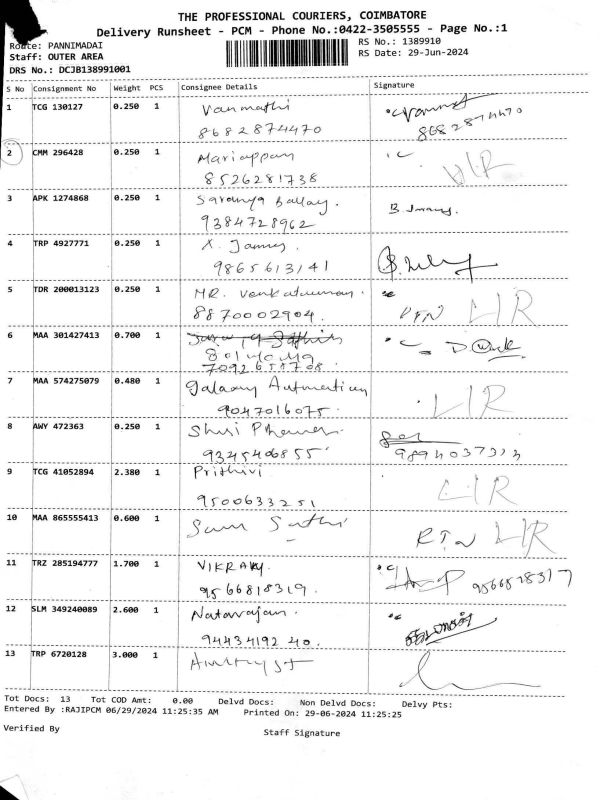 THE PROFESSIONAL COURIERS, COIMBATORE
Delivery Runsheet - PCM - Phone No.:0422-3505555 - Page No.:1
Route: PANNIMADAI
RS No.: 1389910
Staff: OUTER AREA
RS Date: 29-Jun-2024
DRS No.: DCJB138991001
S No Consignment No Weight PCS Consignee Details Signature
1 TCG 130127 0.250 1 Vanmathi
8682874470 8682874470
2 CMM 296428 0.250 1 Mariappan LIR
8526281738
3 APK 1274868 0.250 1 Saranya
9384728962
4 TRP 4927771 0.250 1 X. James
9865613141
5 TDR 200013123 0.250 1 MR. LIR
8870002904
6 MAA 301427413 0.700 1
7 MAA 574275079 0.480 1 Galaxy Automation LIR
9047016075
8 AWY 472363 0.250 1 Shri
9345406855 9894037313
9 TCG 41052894 2.380 1 Prithivi LIR
9500633251
10 MAA 865555413 0.600 1 RTN LIR
11 TRZ 285194777 1.700 1 VIKRAM
9566818319
12 SLM 349240089 2.600 1 Natarajan
9443419240
13 TRP 6720128 3.000 1
Tot Docs: 13 Tot COD Amt: 0.00 Delvd Docs: Non Delvd Docs: Delvy Pts:
Entered By :RAJIPCM 06/29/2024 11:25:35 AM Printed On: 29-06-2024 11:25:25
Verified By Staff Signature